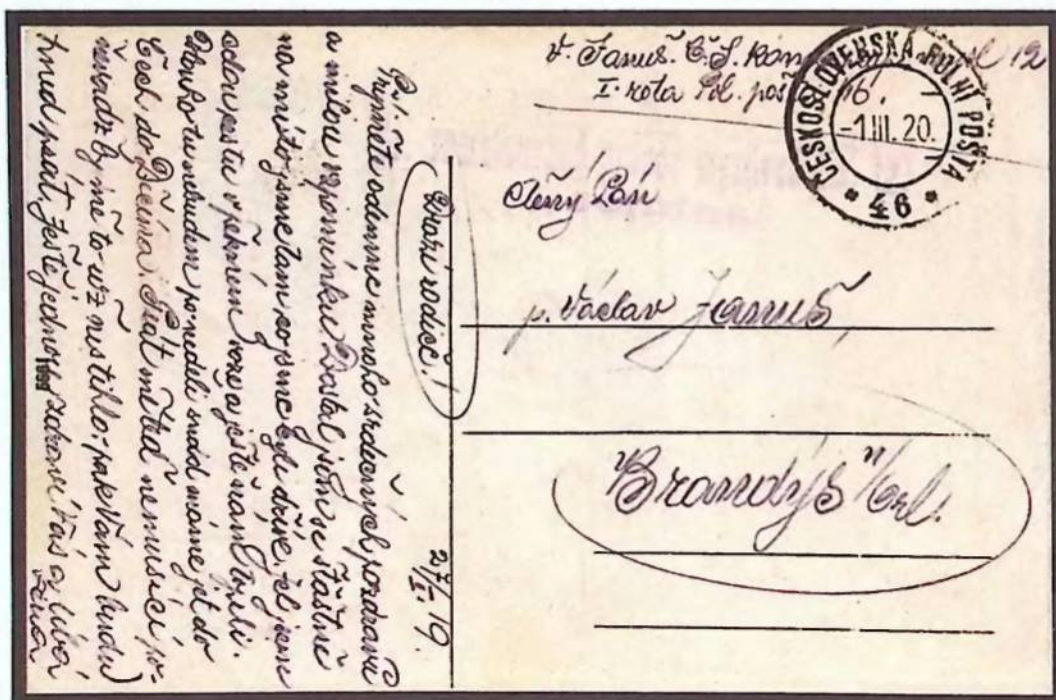 V. Januš. Č.S. 12
I. rota Pol. poš 46.
ČESKOSLOVENSKÁ POLNÍ POŠTA
-1.III.20.
* 46 *
Ctěný Pán
p. Václav Januš,
Brandýs n/Orl.
27/I. 19.
Drazí rodiče!
Přijměte odemne mnoho srdečných pozdravu
a milou vzpomínku. Dostal jsem se šťastně
na místo, jsme tam co jsme byli dříve, jel jsem
celou cestu v pěkném voze a ještě nám topili.
Dlouho tu nebudem, po neděli snád máme jet do
Čech do Děčína. Psát mě teď nemusíci po-
něvadž by mě to už nestihlo; pak Vám budu
hnud psát. Ještě jednou zdraví Vás a líbá